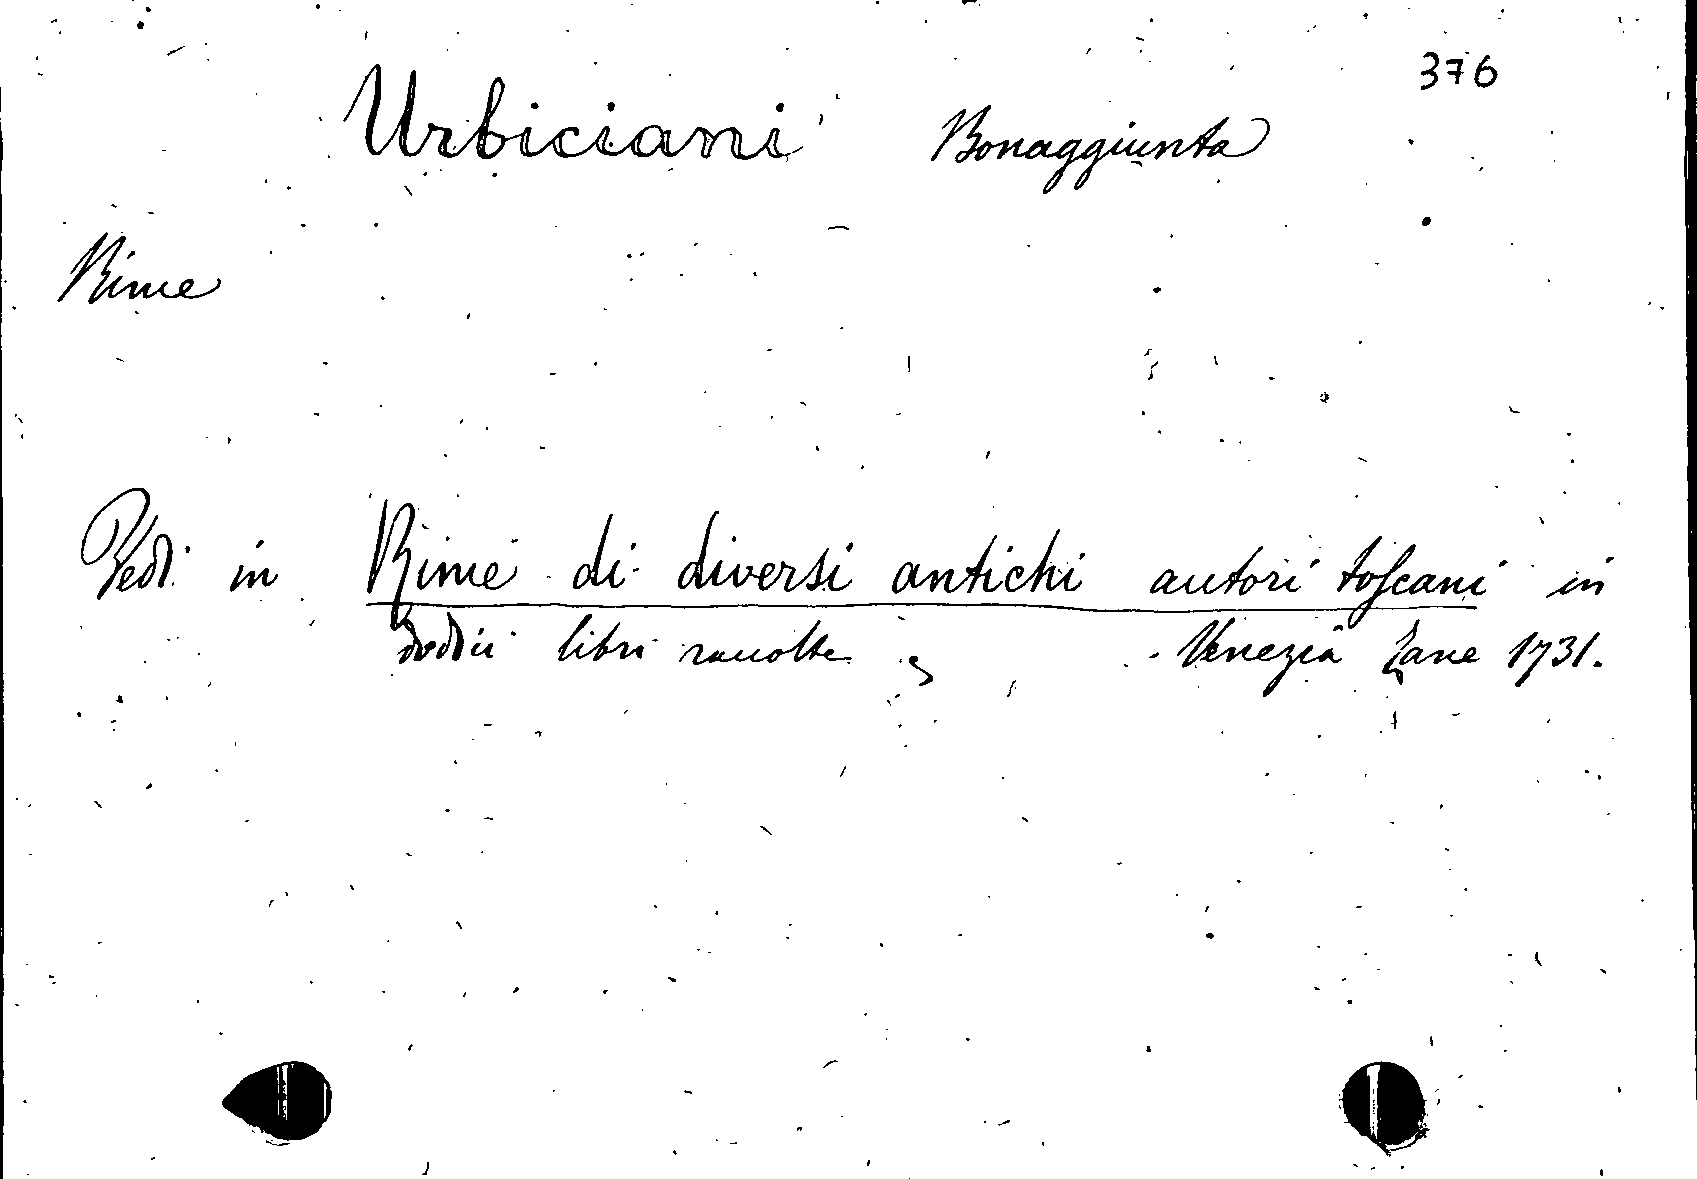 376
Urbiciani Bonaggiunta
Rime
Vedi in Rime di diversi antichi autori toscani in
dodici libri raccolte Venezia Zane 1731.